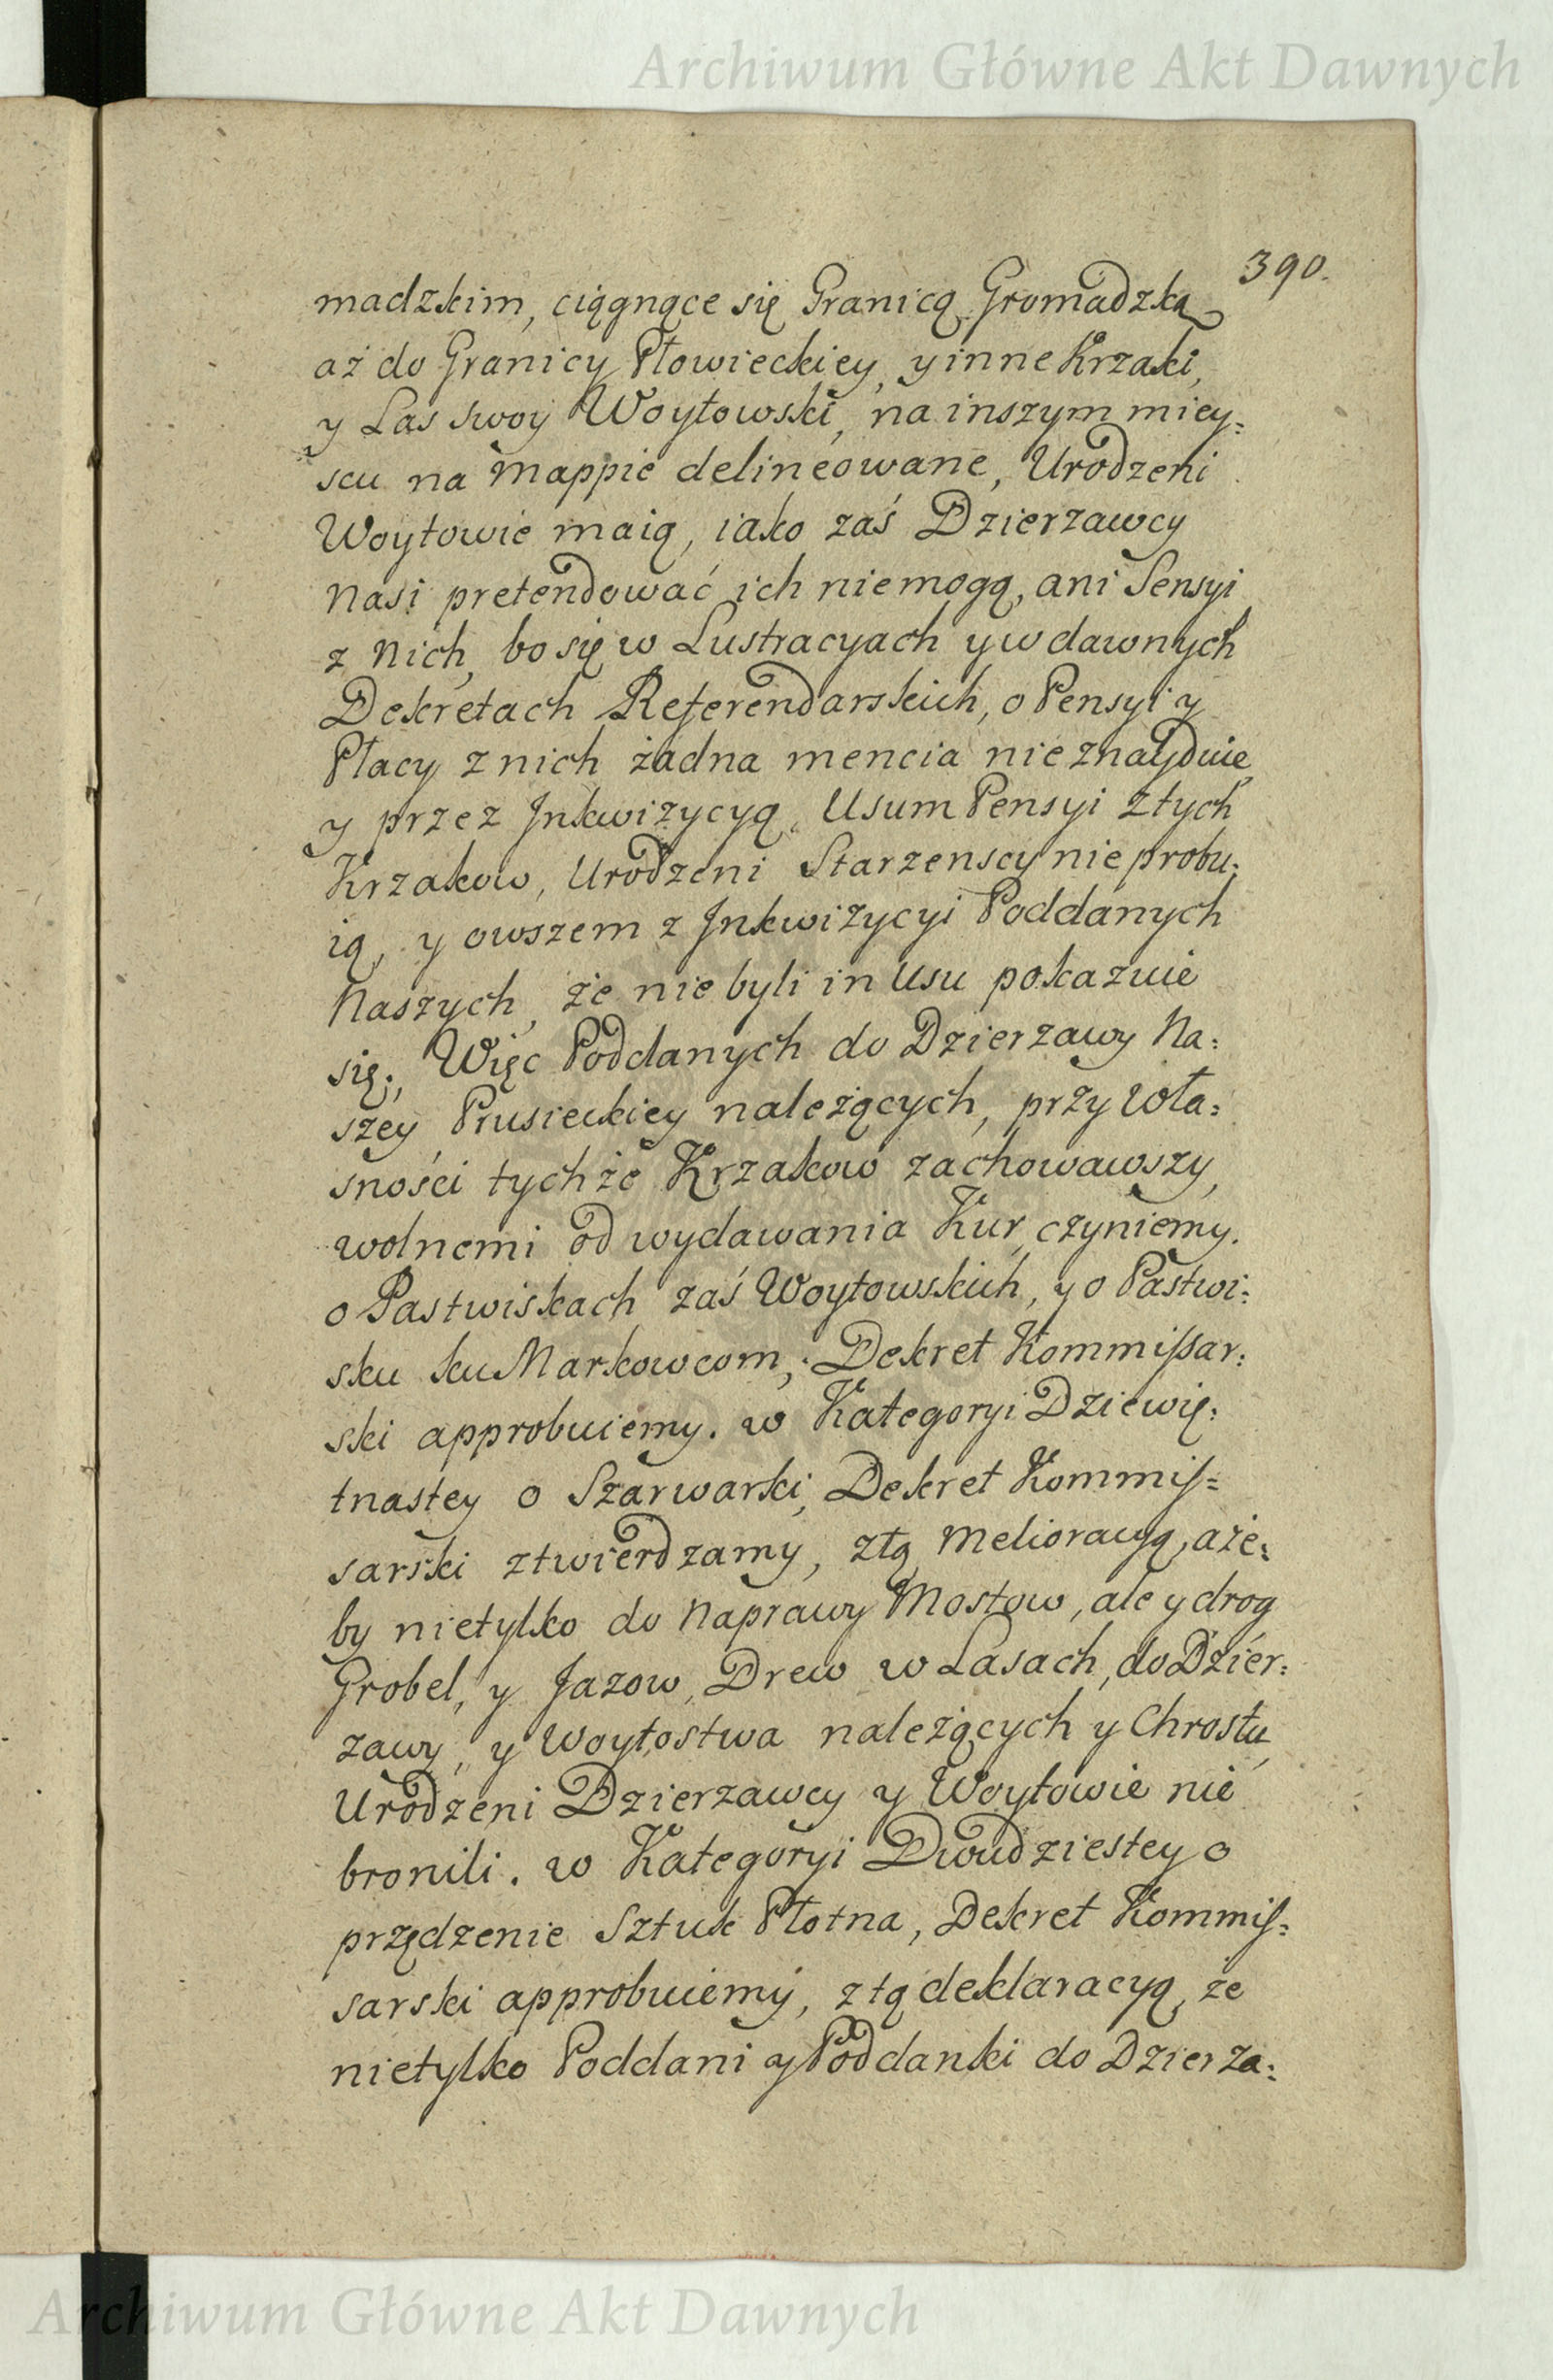 Archiwum Główne Akt Dawnych
390.
madzkim, ciągnące się Granicą Gromadzką
aż do Granicy Płowieckiey, y inne Krzaki,
y Las swoy Woytowski, na inszym miey:
scu na Mappie delineowane, Urodzeni
Woytowie maią, iako zaś Dzierzawcy
Nasi pretendować ich niemogą, ani Pensyi
z Nich, bo się w Lustracyach y w dawnych
Dekretach Referendarskich, o Pensyi y
Płacy z nich żadna mencia nie znayduie,
y przez Jnkwizycyą Usum Pensyi z tych
Krzakow, Urodzeni Starzenscy nie probu:
ią, y owszem z Jnkwizycyi Poddanych
Naszych, że nie byli in Usu pokazuie
się; Więc Poddanych do Dzierzawy Na:
szey Prusieckiey należących, przy wła:
sności tychże Krzakow zachowawszy,
wolnemi od wydawania Kur czyniemy.
o Pastwiskach zaś Woytowskich, y o Pastwi:
sku ku Markowcom, Dekret Kommissar:
ski approbuiemy. w Kategoryi Dziewię:
tnastey o Szarwarki, Dekret Kommis=
sarski ztwierdzamy, z tą Melioracyą, aże:
by nietylko do Naprawy Mostow, ale y drog
Grobel, y Jazow, Drew w Lasach, do Dzier:
zawy, y Woytostwa należących y Chrostu,
Urodzeni Dzierzawcy y Woytowie nie
bronili. w Kategoryi Dwudziestey o
przędzenie Sztuk Płotna, Dekret Kommis:
sarski approbuiemy, z tą deklaracyą, że
nietylko Poddani y Poddanki do Dzierza:
Archiwum Główne Akt Dawnych